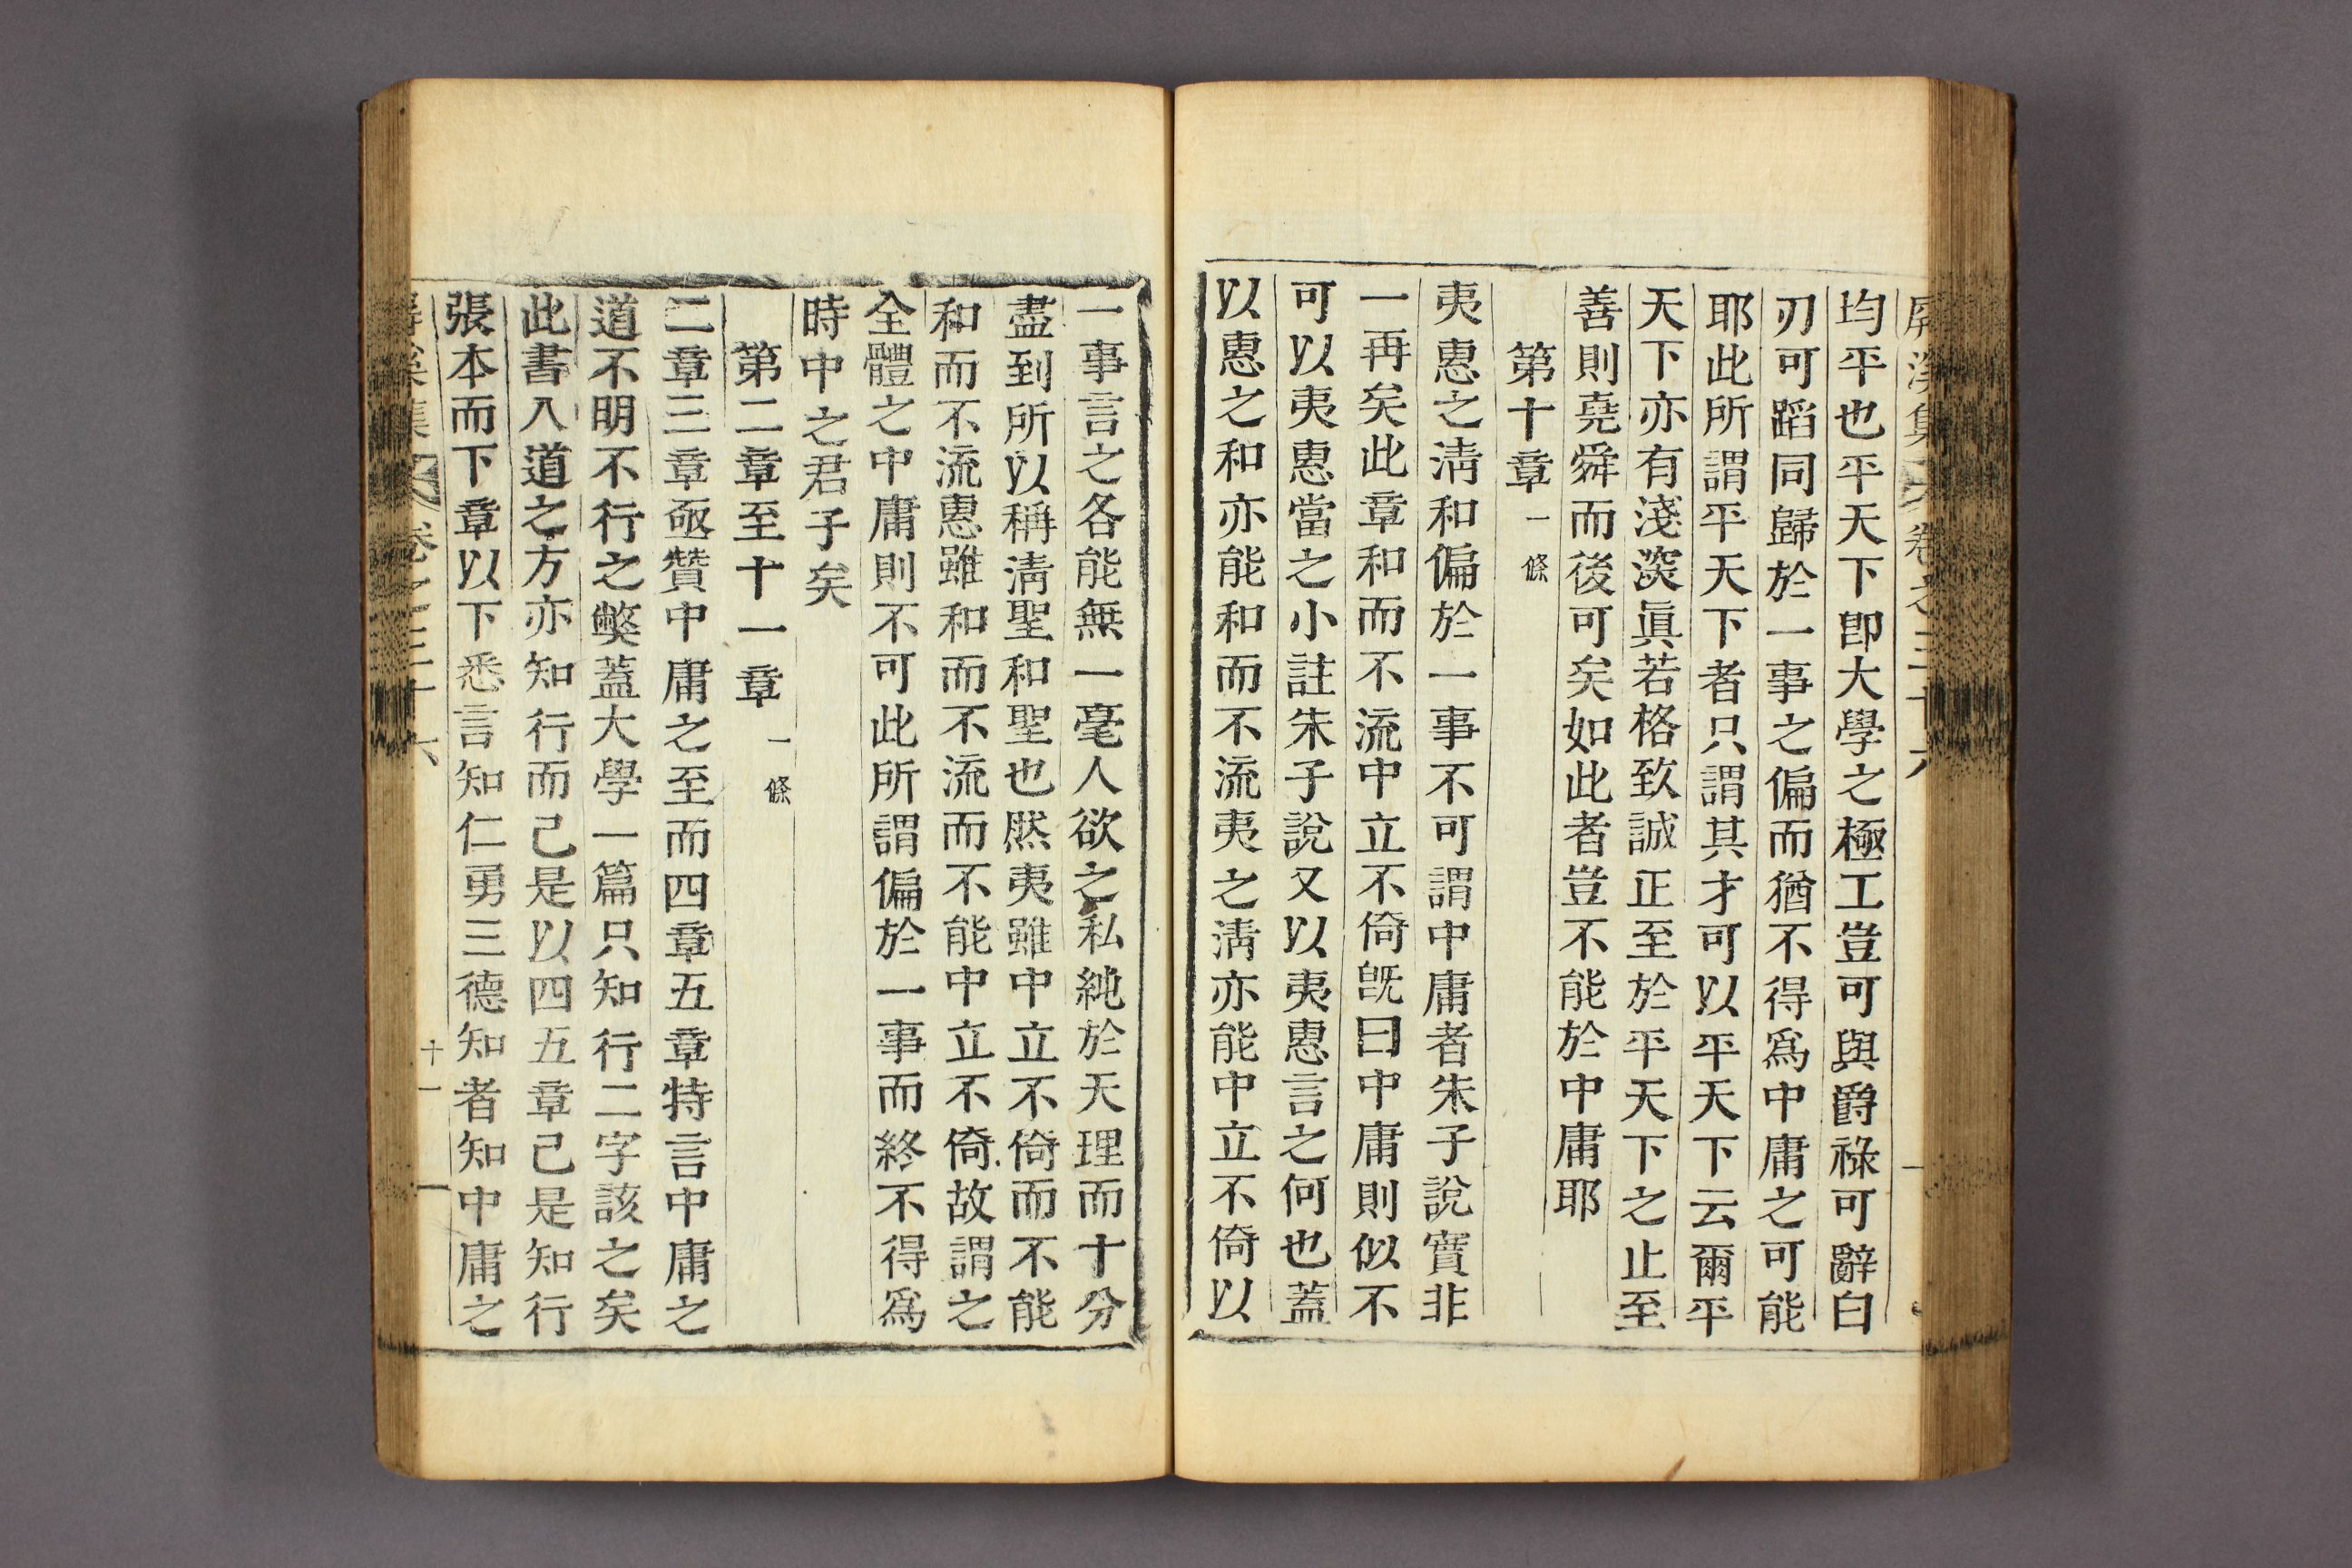 屛溪集 卷之三十六
均平也平天下卽大學之極工豈可與爵祿可辭白
刃可蹈同歸於一事之偏而猶不得爲中庸之可能
耶此所謂平天下者只謂其才可以平天下云爾平
天下亦有淺深眞若格致誠正至於平天下之止至
善則堯舜而後可矣如此者豈不能於中庸耶
第十章 一條
夷惠之淸和偏於一事不可謂中庸者朱子說實非
一再矣此章和而不流中立不倚旣曰中庸則似不
可以夷惠當之小註朱子說又以夷惠言之何也蓋
以惠之和亦能和而不流夷之淸亦能中立不倚以
一事言之各能無一毫人欲之私純於天理而十分
盡到所以稱淸聖和聖也然夷雖中立不倚而不能
和而不流惠雖和而不流而不能中立不倚故謂之
全體之中庸則不可此所謂偏於一事而終不得爲
時中之君子矣
第二章至十一章 一條
二章三章亟贊中庸之至而四章五章特言中庸之
道不明不行之弊蓋大學一篇只知行二字該之矣
此書入道之方亦知行而已是以四五章已是知行
張本而下章以下悉言知仁勇三德知者知中庸之
屛溪集 卷之三十六 十一